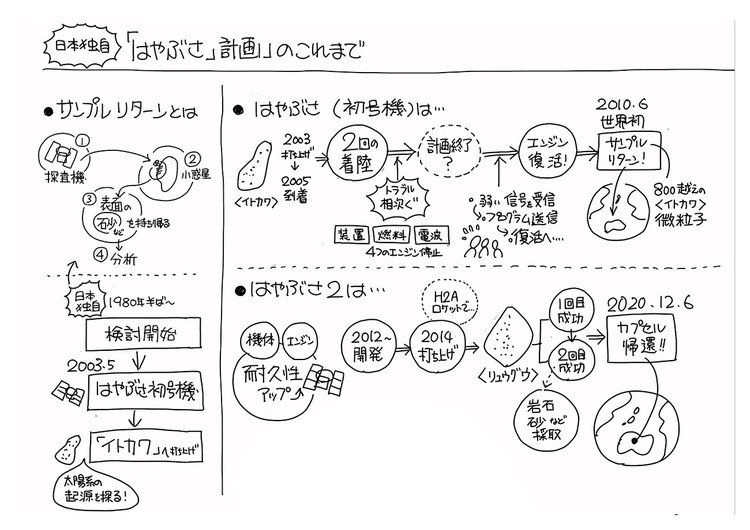 日本独自
「はやぶさ」計画」のこれまで
● サンプルリターンとは
①
探査機
②
小惑星
③ 表面の
石砂など
を持ち帰る
④分析
日本独自
1980年半ば〜
検討開始
2003.5
はやぶさ初号機
「イトカワ」へ打ち上げ
太陽系の
起源を探る！
● はやぶさ（初号機）は…
<イトカワ>
2003
打ち上げ
2005
到着
2回の
着陸
トラブル
相次ぐ
装置 燃料 電波
4つのエンジン停止
計画終了
？
弱い信号を受信
プログラム送信
復活へ…
エンジン
復活！
2010.6
世界初
サンプル
リターン！
800越えの
<イトカワ>
微粒子
● はやぶさ2は…
機体 エンジン
耐久性
アップ
2012〜
開発
H2A
ロケットで…
2014
打ち上げ
<リュウグウ>
1回目
成功
2回目
成功
岩石
砂など
採取
2020.12.6
カプセル
帰還!!